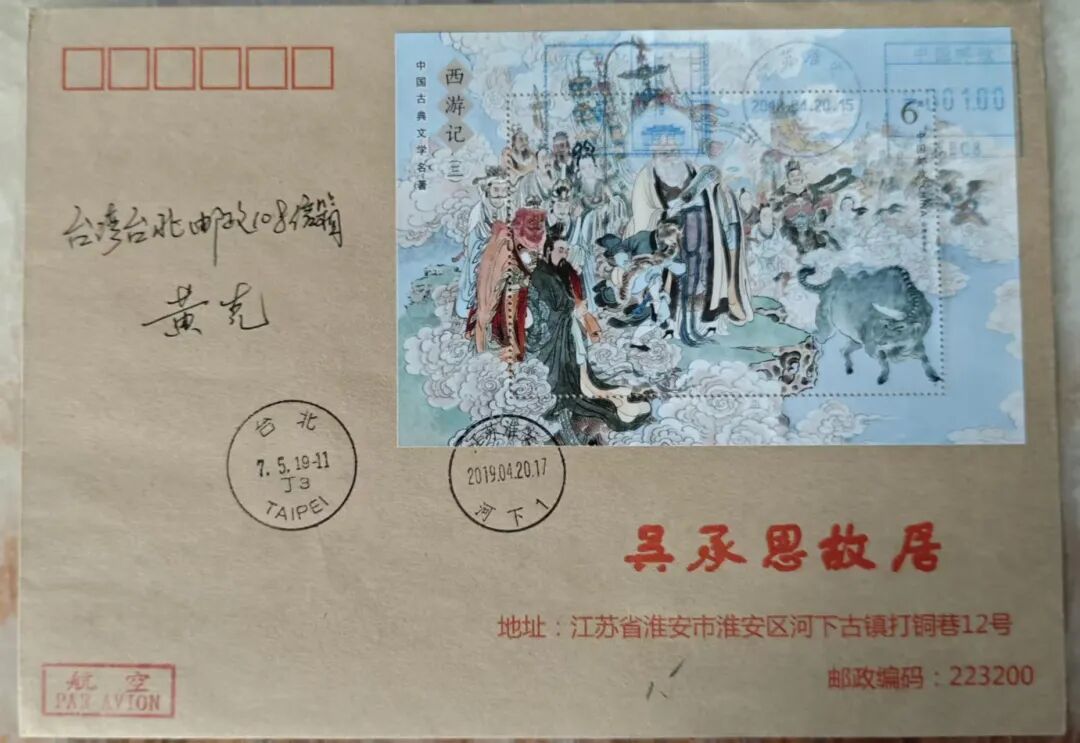 中国古典文学名著
西游记(三)
6元
中国邮政
01.00
2019.04.20.15
台湾台北邮政108信箱
黄克
台北
7.5.19-11
J3
TAIPEI
江苏淮安
2019.04.20.17
河下1
吴承恩故居
地址：江苏省淮安市淮安区河下古镇打铜巷12号
邮政编码：223200
航空
PAR AVION